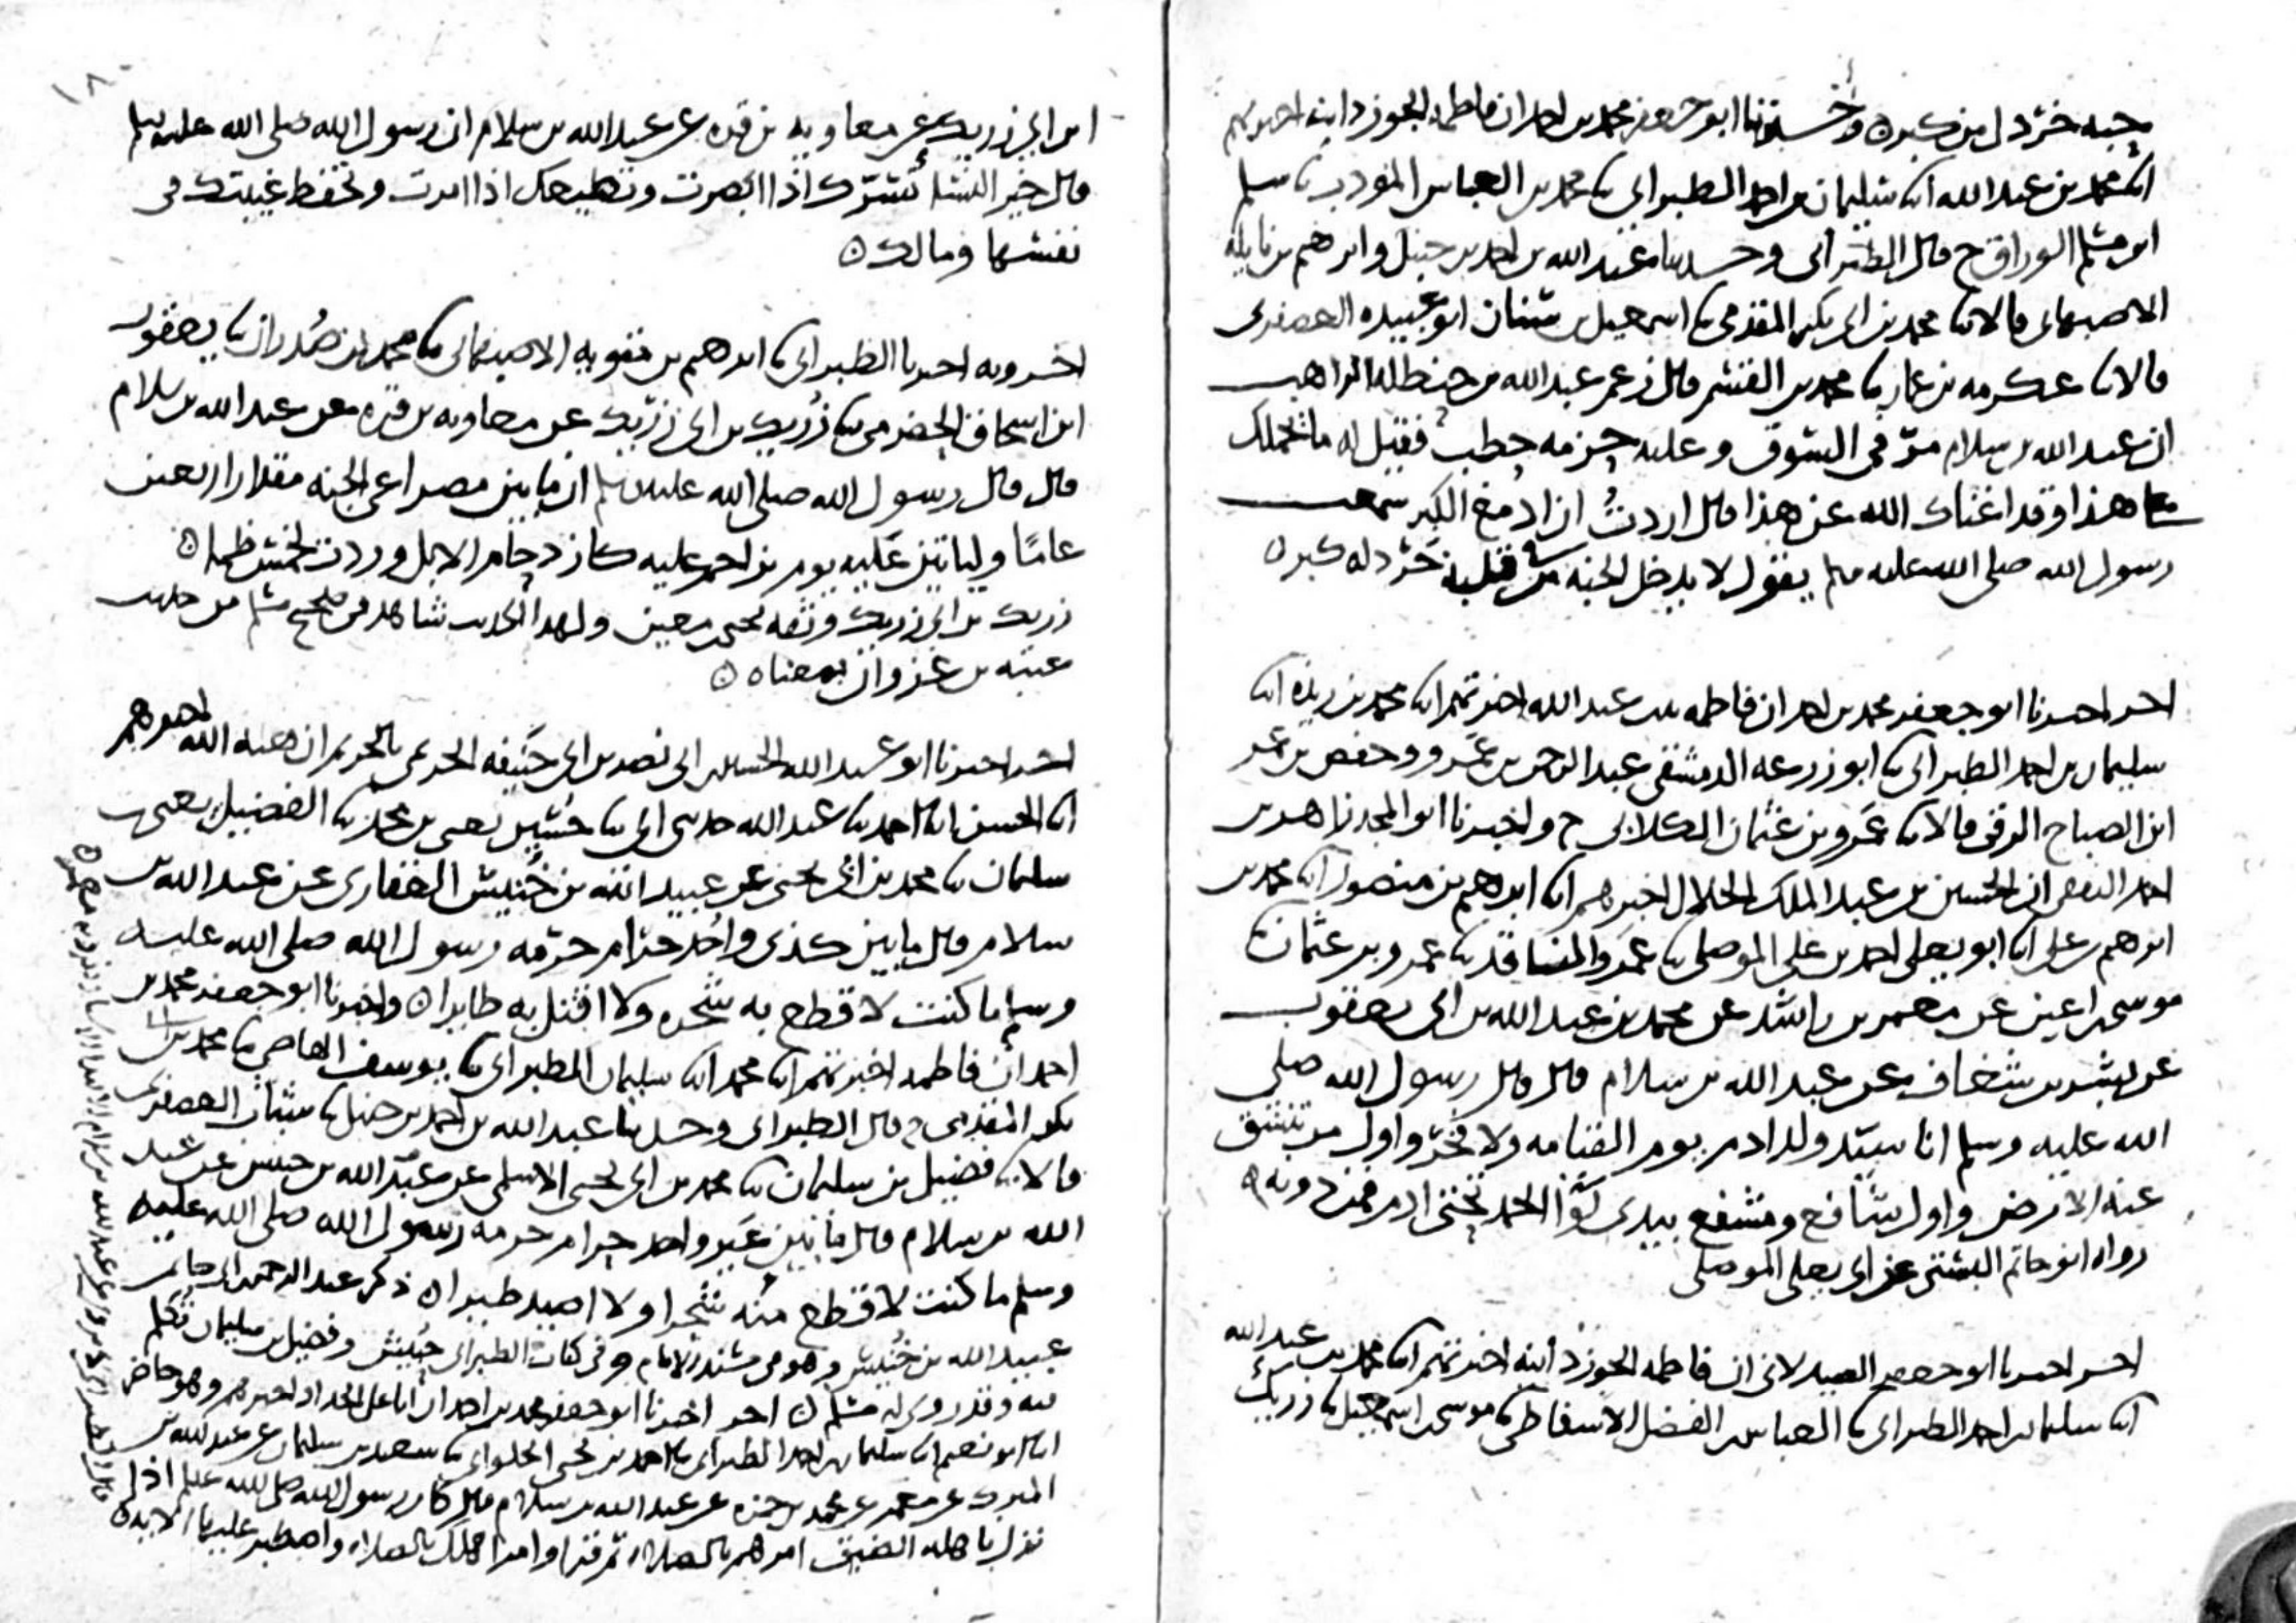 حبه خردل من كبر ه وأخبرنا ابو جعفر محمد بن احمد ان فاطمه الجوزدانيه اخبرتهم
انا محمد بن عبد الله انا سليمان بن احمد الطبراني نا محمد بن العباس المؤدب نا سلم
ابن الوراق ح قال الطبراني وحدثنا عبد الله بن احمد بن حنبل وابرهيم بن نايله
الاصبهاني قالا نا محمد بن ابي بكر المقدمي نا اسمعيل بن سنان ابو عبيده العصفري
قالا نا عكرمه بن عمار نا محمد بن القسم قال زعم عبد الله بن حنظله الراهب
ان عبد الله بن سلام مر في السوق وعليه حزمه حطب فقيل له ما يحملك
على هذا وقد اغناك الله عن هذا قال اردت ان ادمغ الكبر سمعت
رسول الله صلى الله عليه وسلم يقول لا يدخل الجنه من في قلبه خردله كبر ه
اخبرنا ابو جعفر محمد بن احمد ان فاطمه بنت عبد الله اخبرتهم انا محمد بن ريذه انا
سليمان بن احمد الطبراني نا ابو زرعه الدمشقي عبد الرحمن بن عمرو وحفص بن عمر
ابن الصباح الرقي قالا نا عمرو بن عثمان الكلابي ح واخبرنا ابو المجد زاهر بن
احمد الثقفي ان الحسين بن عبد الملك الخلال اخبرهم انا ابرهيم بن منصور انا محمد بن
ابرهيم بن علي انا ابو يعلى احمد بن علي الموصلي نا عمرو الناقد نا عمرو بن عثمان
موسى بن اعين عن معمر بن راشد عن محمد بن عبد الله بن ابي يعقوب
عن بشر بن شغاف عن عبد الله بن سلام قال قال رسول الله صلى
الله عليه وسلم انا سيد ولد ادم يوم القيامه ولا فخر واول من تنشق
عنه الارض واول شافع ومشفع بيدي لواء الحمد تحتي ادم فمن دونه ه
رواه ابو حاتم البستي عن ابي يعلى الموصلي
اخبرنا ابو جعفر الصيدلاني ان فاطمه الجوزدانيه اخبرتهم انا محمد بن عبد الله
انا سليمان بن احمد الطبراني نا العباس بن الفضل الاسفاطي نا موسى بن اسمعيل نا زريك
ابن ابي زريك عن معاويه بن قره عن عبد الله بن سلام ان رسول الله صلى الله عليه وسلم
قال خير النساء تسرك اذا ابصرت وتطيعك اذا امرت وتحفظ غيبتك في
نفسها ومالك ه
اخبرنا الطبراني نا ابرهيم بن متويه الاصبهاني نا محمد بن صدران نا يعقوب
ابن اسحاق الحضرمي نا زريك بن ابي زريك عن معاويه بن قره عن عبد الله بن سلام
قال قال رسول الله صلى الله عليه وسلم ان ما بين مصراعي الجنه مقدار اربعين
عاما ولياتين عليه يوم يزاحم عليه كازدحام الابل وردت لخمس ظما ه
زريك بن ابي زريك وثقه يحيى بن معين ولهذا الحديث شاهد في صحيح مسلم من حديث
عتبه بن غزوان بمعناه ه
اخبرنا ابو عبد الله الحسين بن ابي نصر بن ابي حنيفه الحريمي بالحريم ان هبه الله اخبرهم
انا الحسن انا احمد نا عبد الله حدثني ابي نا حسين يعني بن محمد نا الفضيل يعني بن
سلمان نا محمد بن ابي يحيى عن عبيد الله بن خنيس الغفاري عن عبد الله بن
سلام قال ما بين كذي واحد حرام حرمه رسول الله صلى الله عليه
وسلم ما كنت لاقطع به شجره ولا اقتل به طايرا ه واخبرنا ابو جعفر محمد بن
احمد ان فاطمه اخبرتهم انا محمد انا سليمان الطبراني نا يوسف القاضي نا محمد بن ابي
بكر المقدمي ح قال الطبراني وحدثنا عبد الله بن احمد بن حنبل نا شباب العصفري
قالا نا فضيل بن سليمان نا محمد بن ابي يحيى الاسلمي عن عبيد الله بن خنيس عن عبد
الله بن سلام قال ما بين عير واحد حرام حرمه رسول الله صلى الله عليه
وسلم ما كنت لاقطع منه شجرا ولا اصيد طيرا ه ذكر عبد الرحمن بن ابي حاتم
عبيد الله بن خنيس وهو في مسند الامام وفي كتاب الطبراني حبيش وفضيل بن سليمان تكلم
فيه وقد روى له مسلم ه اخبرنا ابو جعفر محمد بن احمد ان ابا علي الحداد اخبرهم وهو حاضر
انا ابو نعيم انا سليمان بن احمد الطبراني نا احمد بن يحيى الحلواني نا سعيد بن سليمان عن عبد الله بن
المبرك عن معمر عن محمد بن حمزه عن عبد الله بن سلام قال كان رسول الله صلى الله عليه وسلم اذا
نزل باهله الضيق امرهم بالصلاه ثم قرا وامر اهلك بالصلاه واصطبر عليها الايه ه